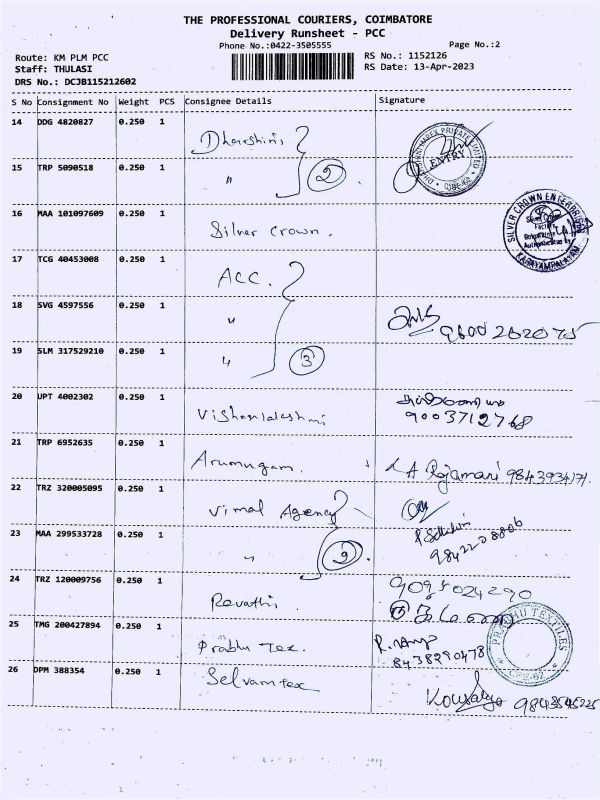 THE PROFESSIONAL COURIERS, COIMBATORE
Delivery Runsheet - PCC
Phone No.:0422-3505555
Page No.:2
Route: KM PLM PCC
RS No.: 1152126
Staff: THULASI
RS Date: 13-Apr-2023
DRS No.: DCJB115212602
S No Consignment No Weight PCS Consignee Details Signature
14 DDG 4820827 0.250 1
Dharshini
ENTRY
15 TRP 5090518 0.250 1
" 2
16 MAA 101097609 0.250 1
Silver Crown.
SILVER CROWN ENTERPRISES
KARAYAMPALAYAM
17 TCG 40453008 0.250 1
ACC.
18 SVG 4597556 0.250 1
"
9600262075
19 SLM 317529210 0.250 1
" 3
20 UPT 4002302 0.250 1
9003712768
21 TRP 6952635 0.250 1
Arumugam.
A Rajamari 984393417
22 TRZ 320005095 0.250 1
Vimal Agency
23 MAA 299533728 0.250 1
"
9842208806
24 TRZ 120009756 0.250 1
Revathi.
9095024290
25 TMG 200427894 0.250 1
Prabhu Tex.
8438290478
PRABHU TEXTILES
26 DPM 388354 0.250 1
Selvamtex
Kousalya 9843545225